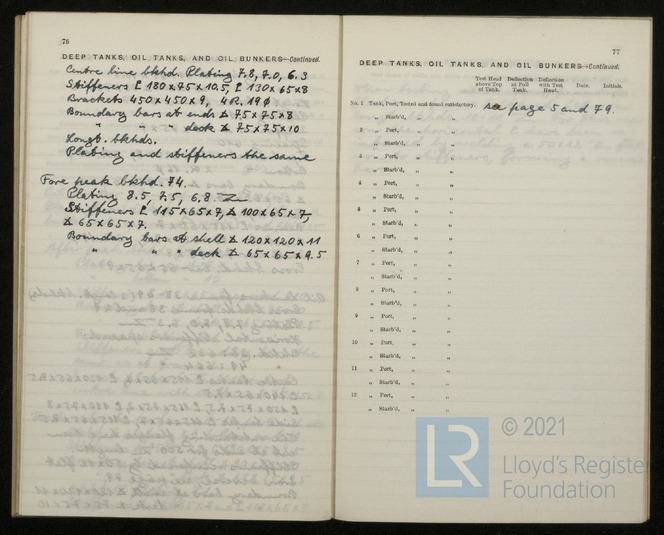 76
DEEP TANKS, OIL TANKS, AND OIL BUNKERS—Continued.
Centre line bkhd. Plating 7.8, 7.0, 6.3
Stiffeners [ 180 x 75 x 10.5, [ 130 x 65 x 8
Brackets 450 x 450 x 9, 4 R. 19 φ
Boundary bars at ends ∆ 75 x 75 x 8
" " " deck ∆ 75 x 75 x 10
Longt. bkhds.
Plating and stiffeners the same
Fore peak bkhd. 74.
Plating 8.5, 7.5, 6.8
Stiffeners [ 115 x 65 x 7, ∆ 100 x 65 x 7,
∆ 65 x 65 x 7.
Boundary bars at shell ∆ 120 x 120 x 11
" " " deck ∆ 65 x 65 x 9.5
77
DEEP TANKS, OIL TANKS, AND OIL BUNKERS—Continued.
Test Head above Top of Tank. Deflection at Full Tank. Deflection with Test Head. Date. Initials.
No. 1 Tank, Port, Tested and found satisfactory. see page 5 and 79.
" Starb'd, " "
2 " Port, " "
" Starb'd, " "
3 " Port, " "
" Starb'd, " "
4 " Port, " "
" Starb'd, " "
5 " Port, " "
" Starb'd, " "
6 " Port, " "
" Starb'd, " "
7 " Port, " "
" Starb'd, " "
8 " Port, " "
" Starb'd, " "
9 " Port, " "
" Starb'd, " "
10 " Port, " "
" Starb'd, " "
11 " Port, " "
" Starb'd, " "
12 " Port, " "
" Starb'd, " "
LR
© 2021
Lloyd's Register
Foundation